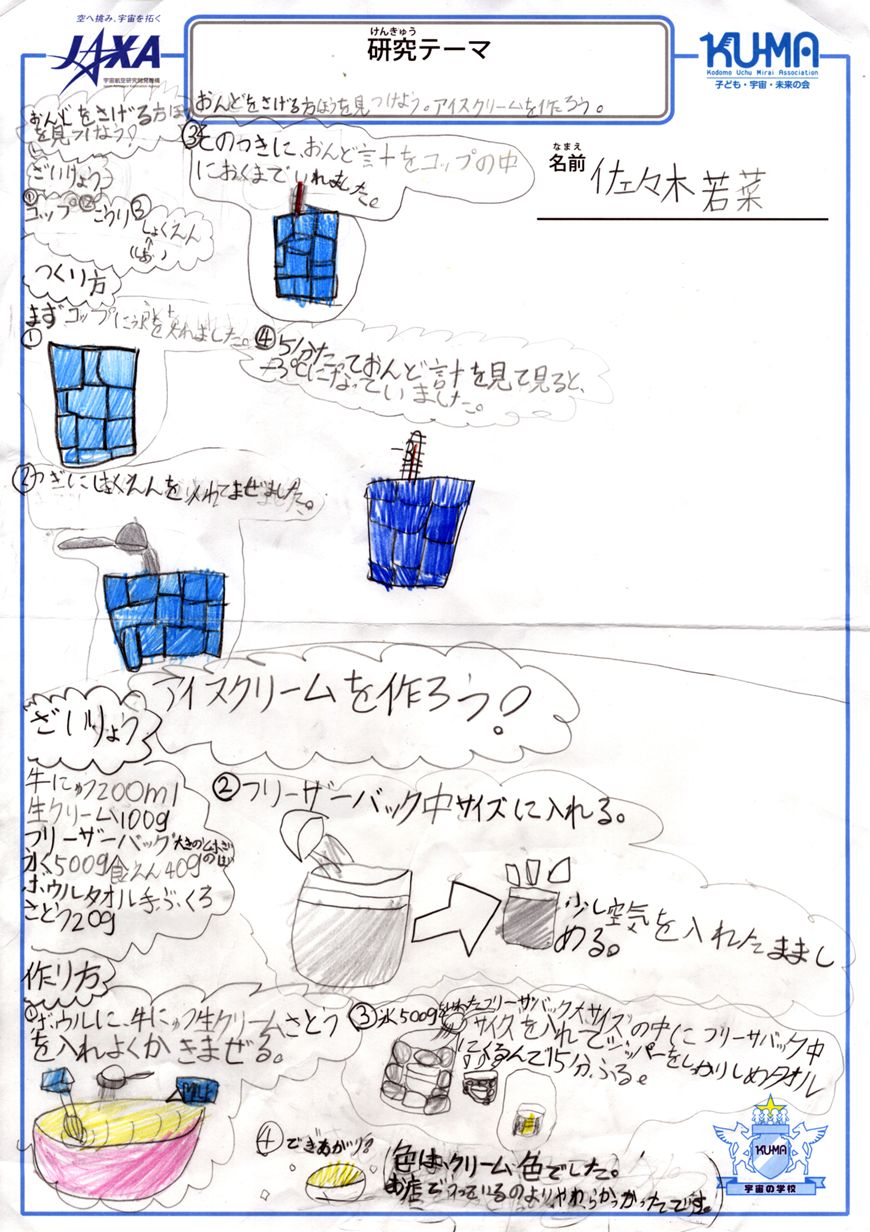 空へ挑み、宇宙を拓く
JAXA
宇宙航空研究開発機構
けんきゅう
研究テーマ
KU-MA
Kodomo Uchu Mirai Association
子ども・宇宙・未来の会
おんどをさげる方ほうを見つけよう。アイスクリームを作ろう。
なまえ
名前
佐々木若菜
おんどをさげる方ほ
を見つけよう!
ざいりょう
①コップ ②こうり ③しょくえん
(しお)
つくり方
まずコップに氷を入れました。
①
②つぎにしょくえんを入れてまぜました。
③そのつぎに、おんど計をコップの中
におくまでいれました。
④5分たっておんど計を見て見ると、
-3℃になっていました。
-3
アイスクリームを作ろう!
ざいりょう
牛にゅう200ml
生クリーム100g
フリーザーバッグ
氷500g食えん40g
ボウルタオル手ぶくろ
さとう20g
作り方
①ボウルに、牛にゅう生クリームさとう
を入れよくかきまぜる。
②フリーザーバック中サイズに入れる。
少し空気を入れたままし
める。
③氷500gを入れたフリーザバック大サイズの中にフリーサバック中
サイズを入れてジッパーをしっかりしめタオル
にくるんで15分ふる。
④できあがり?
色は、クリーム色でした。
お店でうっているのよりやわらかかったです。
KU-MA
宇宙の学校